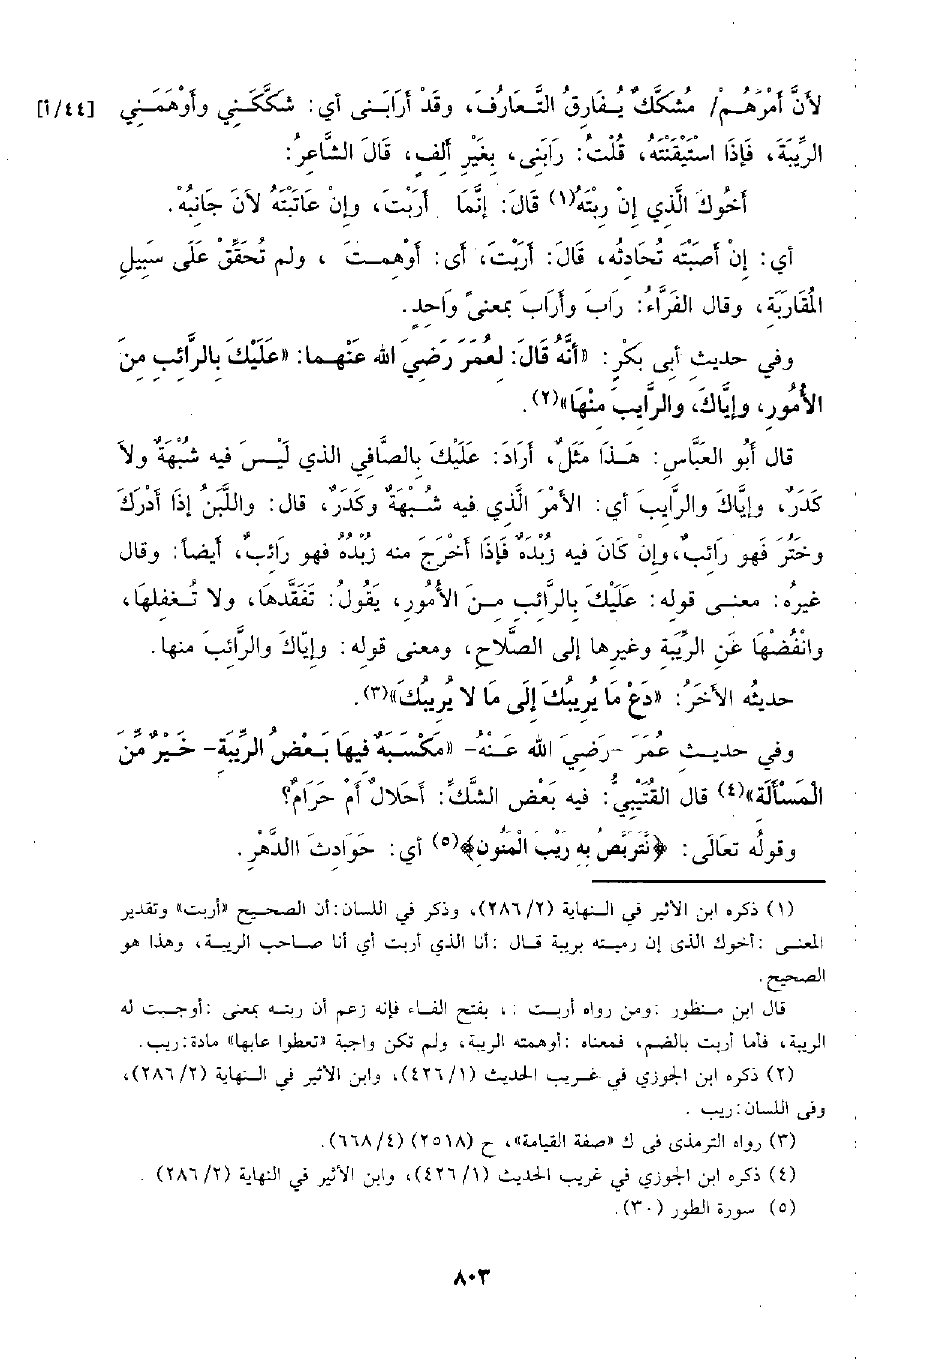 لأنَّ أَمْرَهُمْ/ مُشكَّكٌ يُفَارِقُ التَّعَارُفَ، وقَدْ أرَابَنِى أي: شَكَّكَنِي وأَوْهَمَنِي [٤٤/أ]
الرِّيَبَةَ، فَإذَا اسْتَيْقَنْتَهُ، قُلْتُ: رَابَنِى، بغَيْرِ ألفٍ، قَالَ الشَّاعرُ:
أخُوكَ الَّذي إنْ رِبْتَهُ(١) قَالَ: إنَّمَا أَرَبْتَ، وإنْ عَاتَبْتَهُ لاَنَ جَانِبُهْ.
أي: إنْ أصَبْتَه بُحَادثِه، قَالَ: أرَبْتَ، أى: أوْهمـتَ ، ولم تُحَقِّقْ عَلَى سَبِيلِ
المُقَارَبَةِ، وقال الفَرَّاءُ: رَابَ وأَرَابَ بمعنىً وَاحدٍ.
وفي حديث أبى بكْرٍ: «أنَّهُ قَالَ: لعُمَرَ رَضِيَ الله عَنْهـما: «عَلَيْكَ بالرَّائبِ منَ
الأُمُورِ، وإيَّاكَ، والرَّايبَ منْهَا»(٢).
قال أَبُو العَبَّاسِ: هَـذَا مَثَلٌ، أَرَادَ: عَلَيْكَ بالصَّافِي الذي لَيْـسَ فيه شُبْهَةٌ ولاَ
كَدَرٌ، وإيَّاكَ والرَّايبَ أي: الأَمْرَ الَّذي فيه شُـبْهَةٌ وكَدَرٌ، قال: واللَّبَنُ إذَا أَدْرَكَ
وخَثُرَ فهو رَائبٌ،وإنْ كَانَ فيه زُبْدُه فَإذَا أُخْرِجَ منه زُبْدُه فهو رَائبٌ، أيضاً: وقال
غيرُه: معنـى قوله: عَلَيْكَ بالرَّائب مـنَ الأُمُورِ، يقُولُ: تَفَقَّدهَا، ولا تُـغفلهَا،
وانْفُضْهَا عَنِ الرِّيَبَةِ وغيرها إلى الصَّلاحِ، ومعنى قوله: وإيَّاكَ والرَّائبَ منها.
حديثُه الآخَرُ: «دَعْ مَا يُرِيبُكَ إلَى مَا لا يُرِيبُكَ»(٣).
وفي حديـث عمَرَ -رَضيَ الله عَـنْهُ- «مَكْسَبَةٌ فيهَا بَـعْضُ الرِّيبَة- خَـيْرٌ منَ
المَسْألَة»(٤) قال القُتَيْبِيُّ: فيه بَعْض الشَّكِّ: أحَلالٌ أمْ حَرَامٌ؟
وقولُه تعَالَى: ﴿نَّتَرَبَّصُ بِهِ رَيْبَ الْمَنُونِ﴾(٥) أي: حَوَادثَ االدَّهْرِ.
(١) ذكره ابن الأثير في الـنهاية (٢٨٦/٢)، وذكر في اللسان:أن الصحـيح «أربت» وتقدير
المعنـى :أخوك الذى إن رميـته بريبة قـال :أنا الذي أربت أي أنا صـاحب الريبـة، وهذا هو
الصحيح.
قال ابن مـنظور :ومن رواه أربـت :، بفتح الـفاء فإنه زعم أن ربتـه بمعنى :أوجـبت له
الريبة، فأما أربت بالضم، فمعناه :أوهمته الريبة، ولم تكن واجبة «تعطوا عابها» مادة:ريب.
(٢) ذكره ابن الجوزي في غـريب الحديث (٤٢٦/١)، وابن الأثير في الـنهاية (٢٨٦/٢)،
وفى اللسان:ريب .
(٣) رواه الترمذى فى ك «صفة القيامة»، ح (٢٥١٨) (٦٦٨/٤).
(٤) ذكره ابن الجوزي في غريب الحديث (٤٢٦/١)، وابن الأثير في النهاية (٢٨٦/٢) .
(٥) سورة الطور (٣٠).
٨٠٣